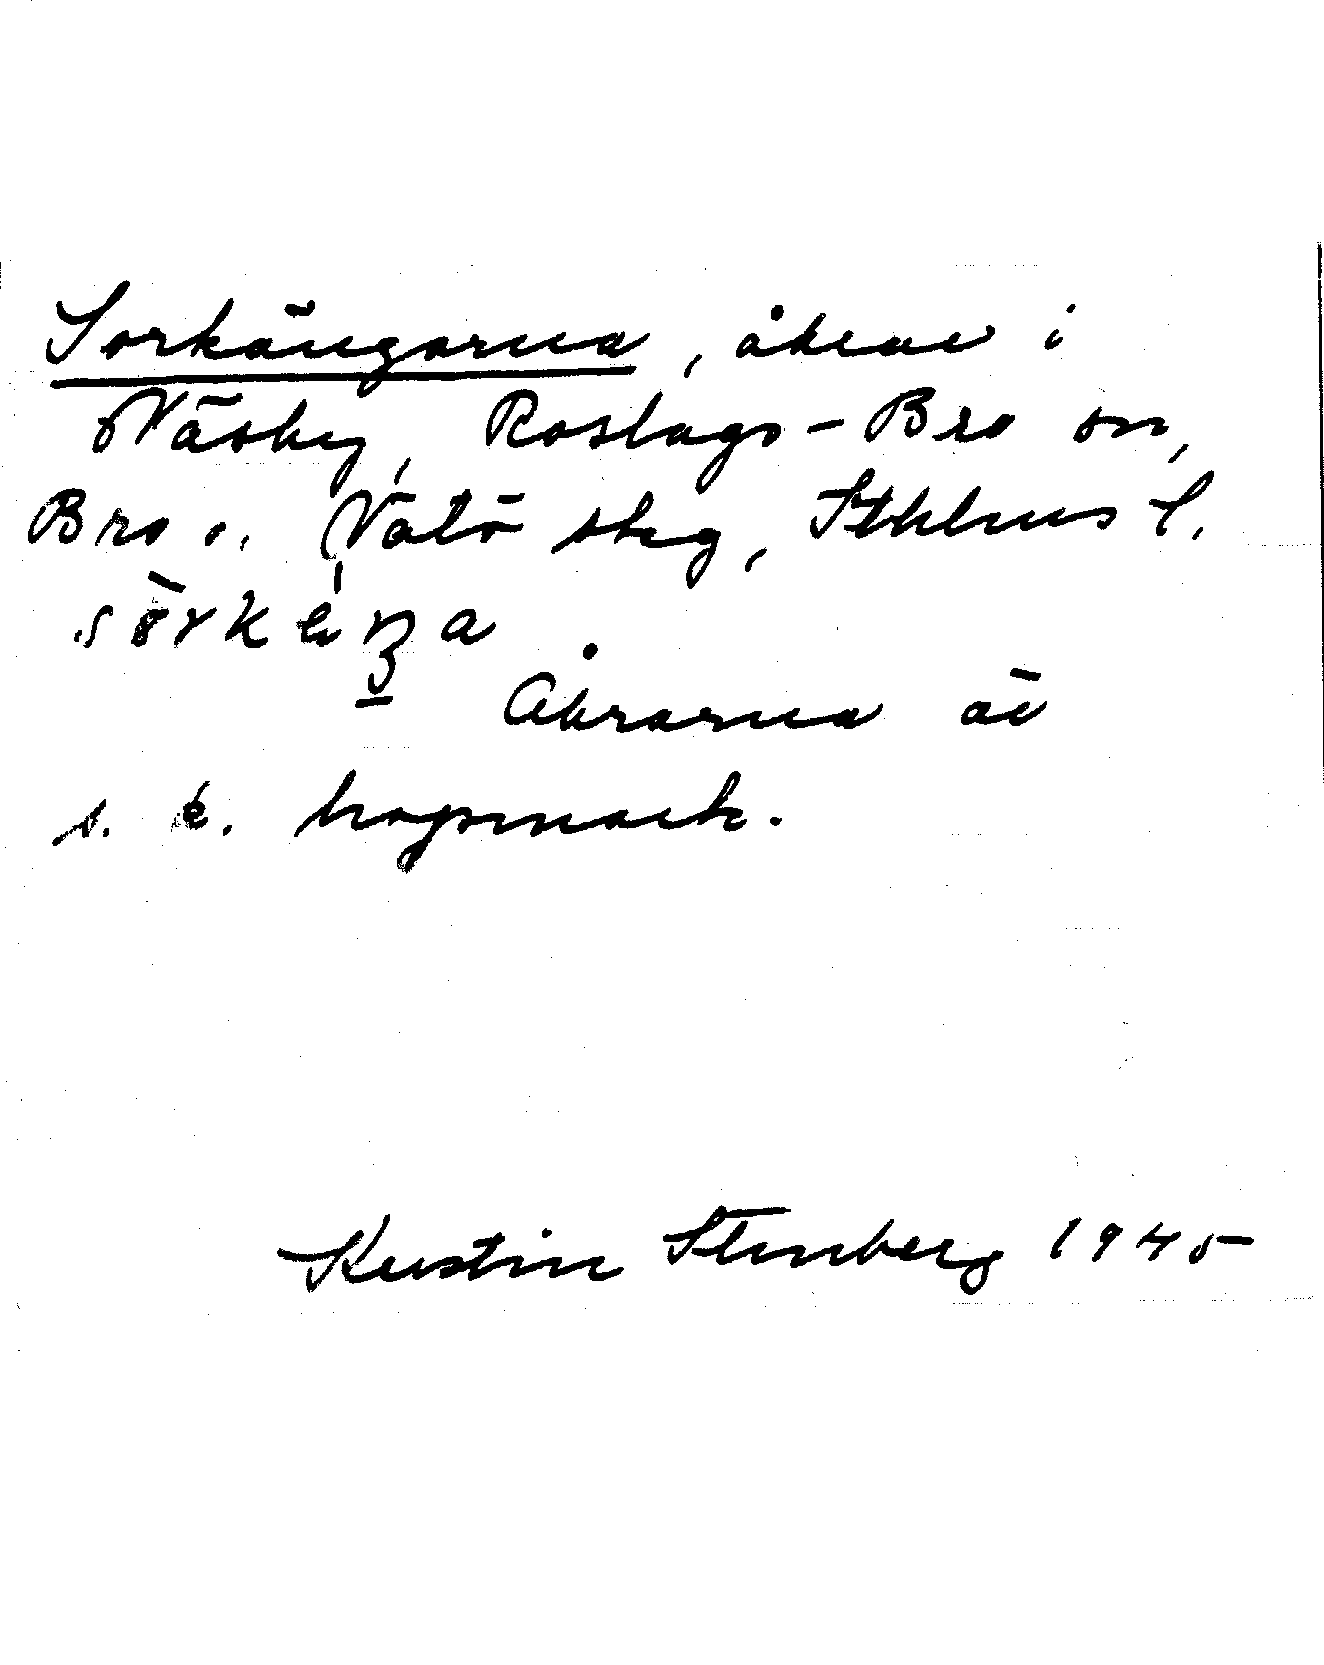 Sorkängarna, åkrar i
Näsby, Roslags-Bro sn,
Bro o. Vätö skg, Sthlms l.
Åkrarna är
s. k. hopmark.
Kerstin Stenberg 1945